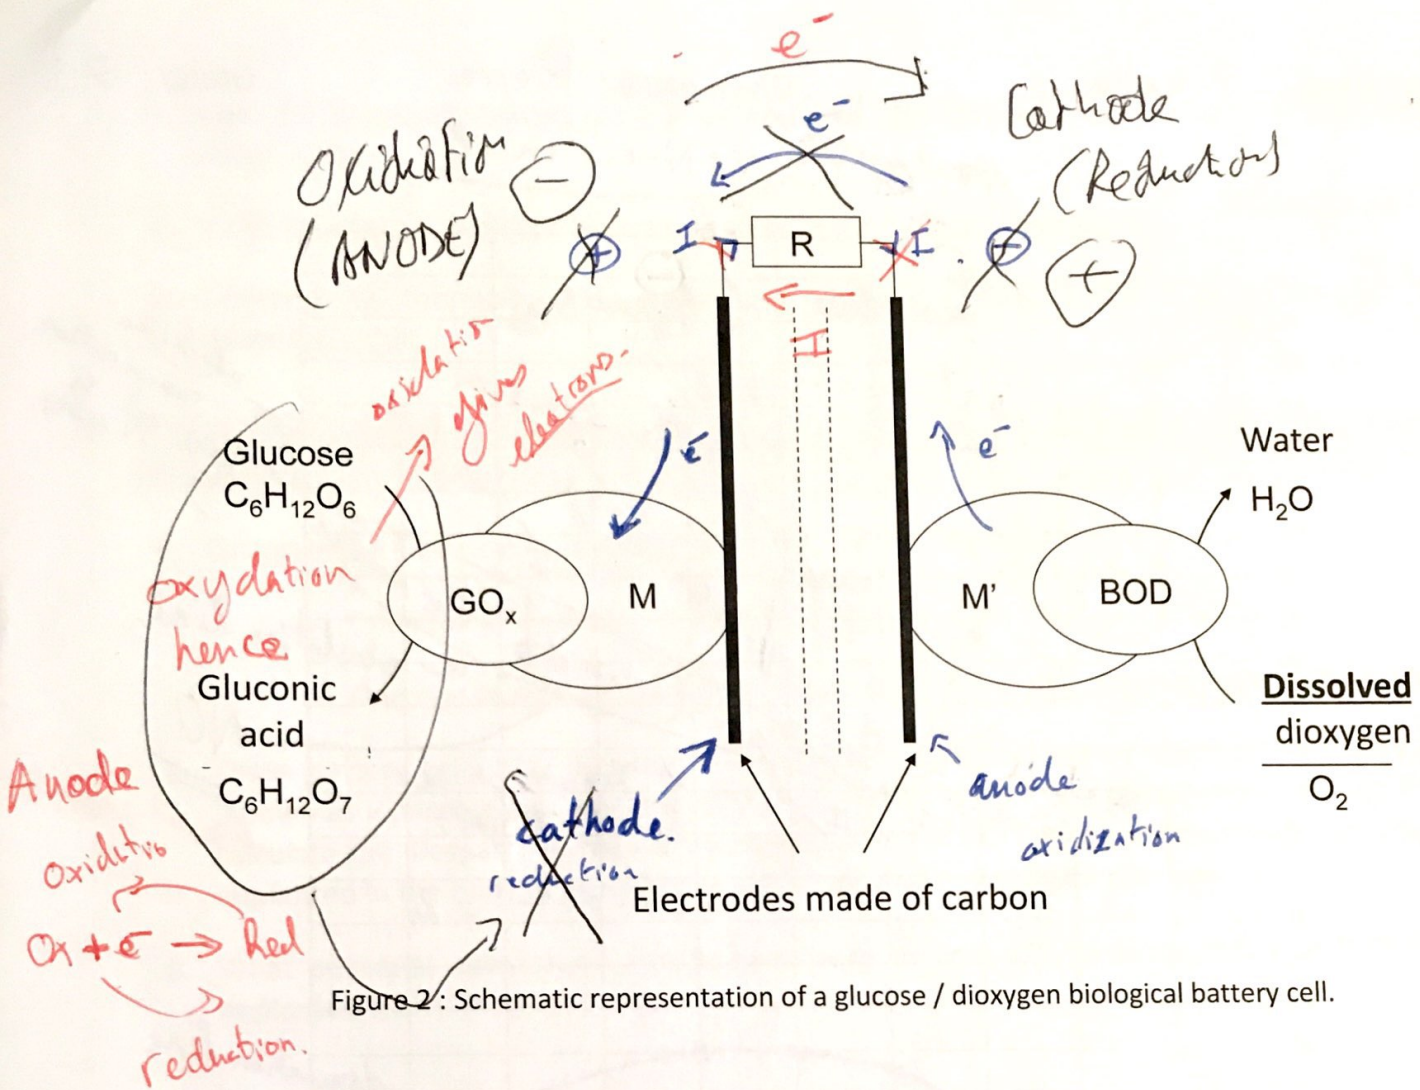 e⁻
e⁻
Cathode
(Reduction)
Oxidation
(ANODE)
−
+
I
R
I
−
+
I
oxidation
gives
electrons
Glucose
C₆H₁₂O₆
oxydation
hence
Gluconic
acid
C₆H₁₂O₇
e⁻
e⁻
GOₓ
M
M'
BOD
Water
H₂O
Dissolved
dioxygen
O₂
Anode
Oxidatio
Ox + e⁻ → Red
reduction.
cathode.
reduction
anode
oxidization
Electrodes made of carbon
Figure 2 : Schematic representation of a glucose / dioxygen biological battery cell.